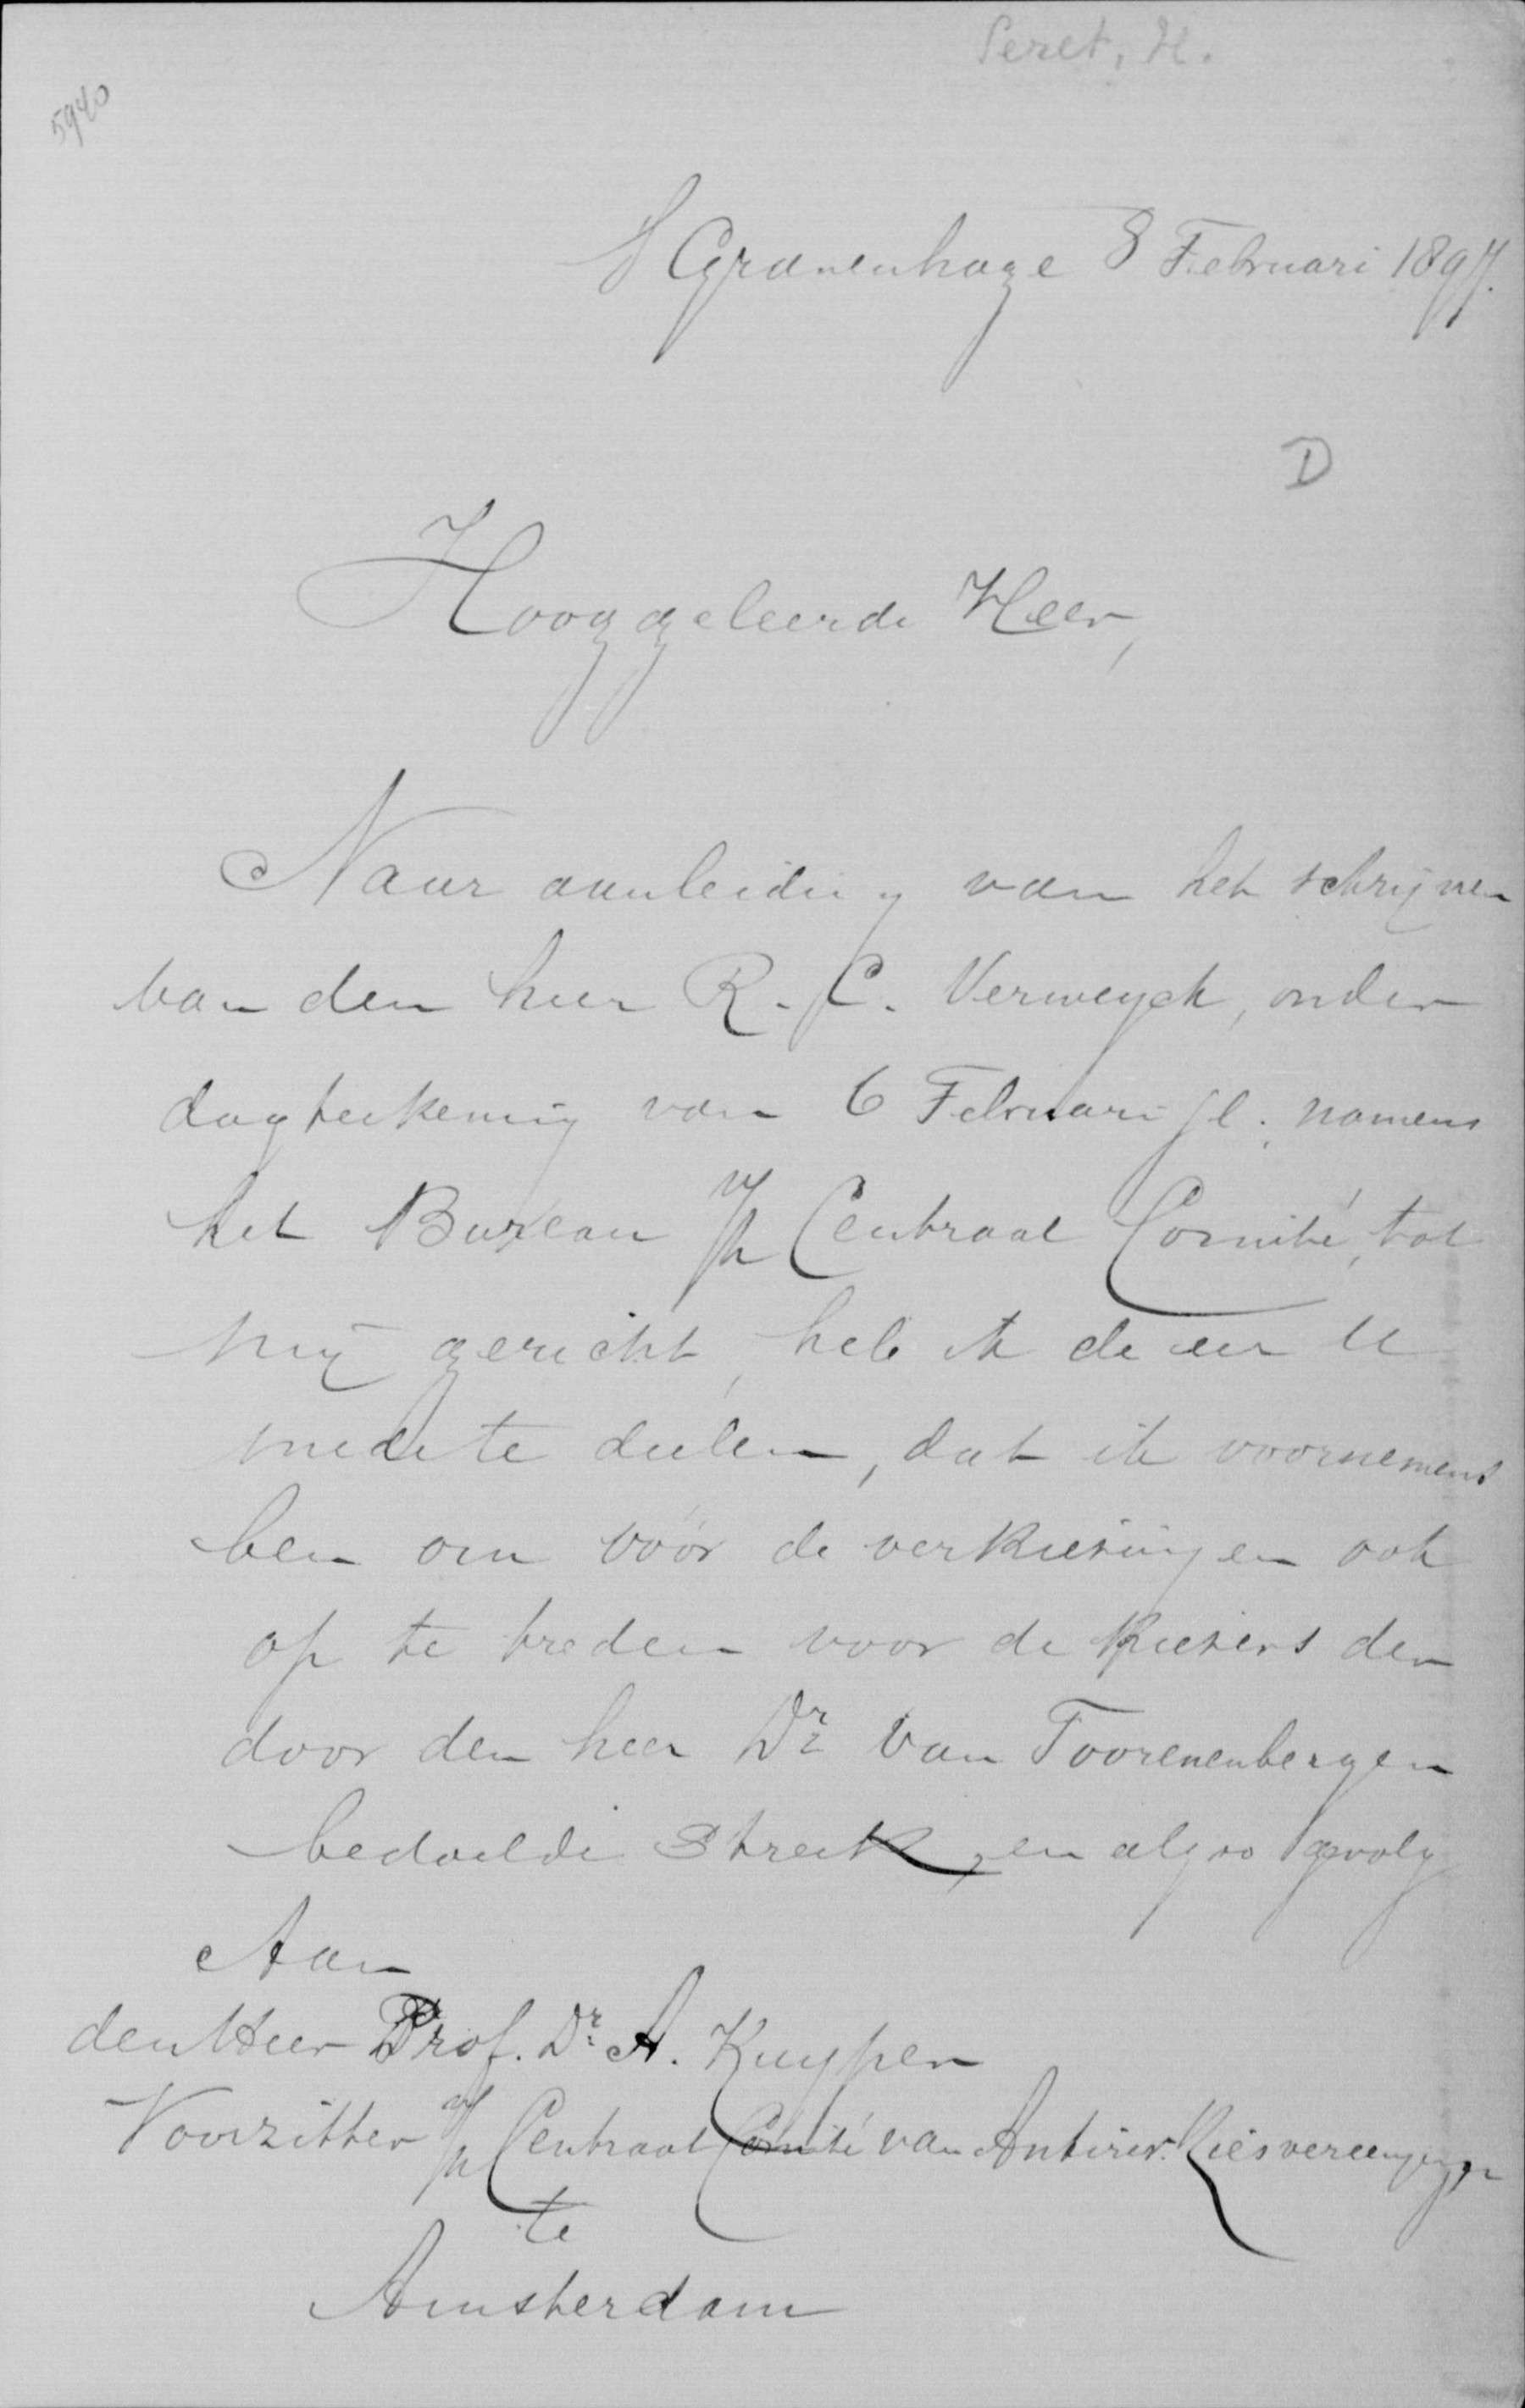 Seret, H.
5940
s Gravenhage 8 Februari 1897.
D
Hooggeleerde Heer,
Naar aanleiding van het schrijven
van den heer R. C. Verweyck, onder
dagteekening van 6 Februari jl. namens
het Bureau v/h Centraal Comité, tot
mij gericht, heb ik de eer U
mede te deelen, dat ik voornemens
ben om vóór de verkiezingen ook
op te treden voor de kiezers der
door den heer Dr. van Toorenenbergen
bedoelde streek, en alzoo gevolg
Aan
den Heer Prof. Dr. A. Kuyper
Voorzitter v/h Centraal Comité van Antirev. Kiesvereenigingen
te
Amsterdam